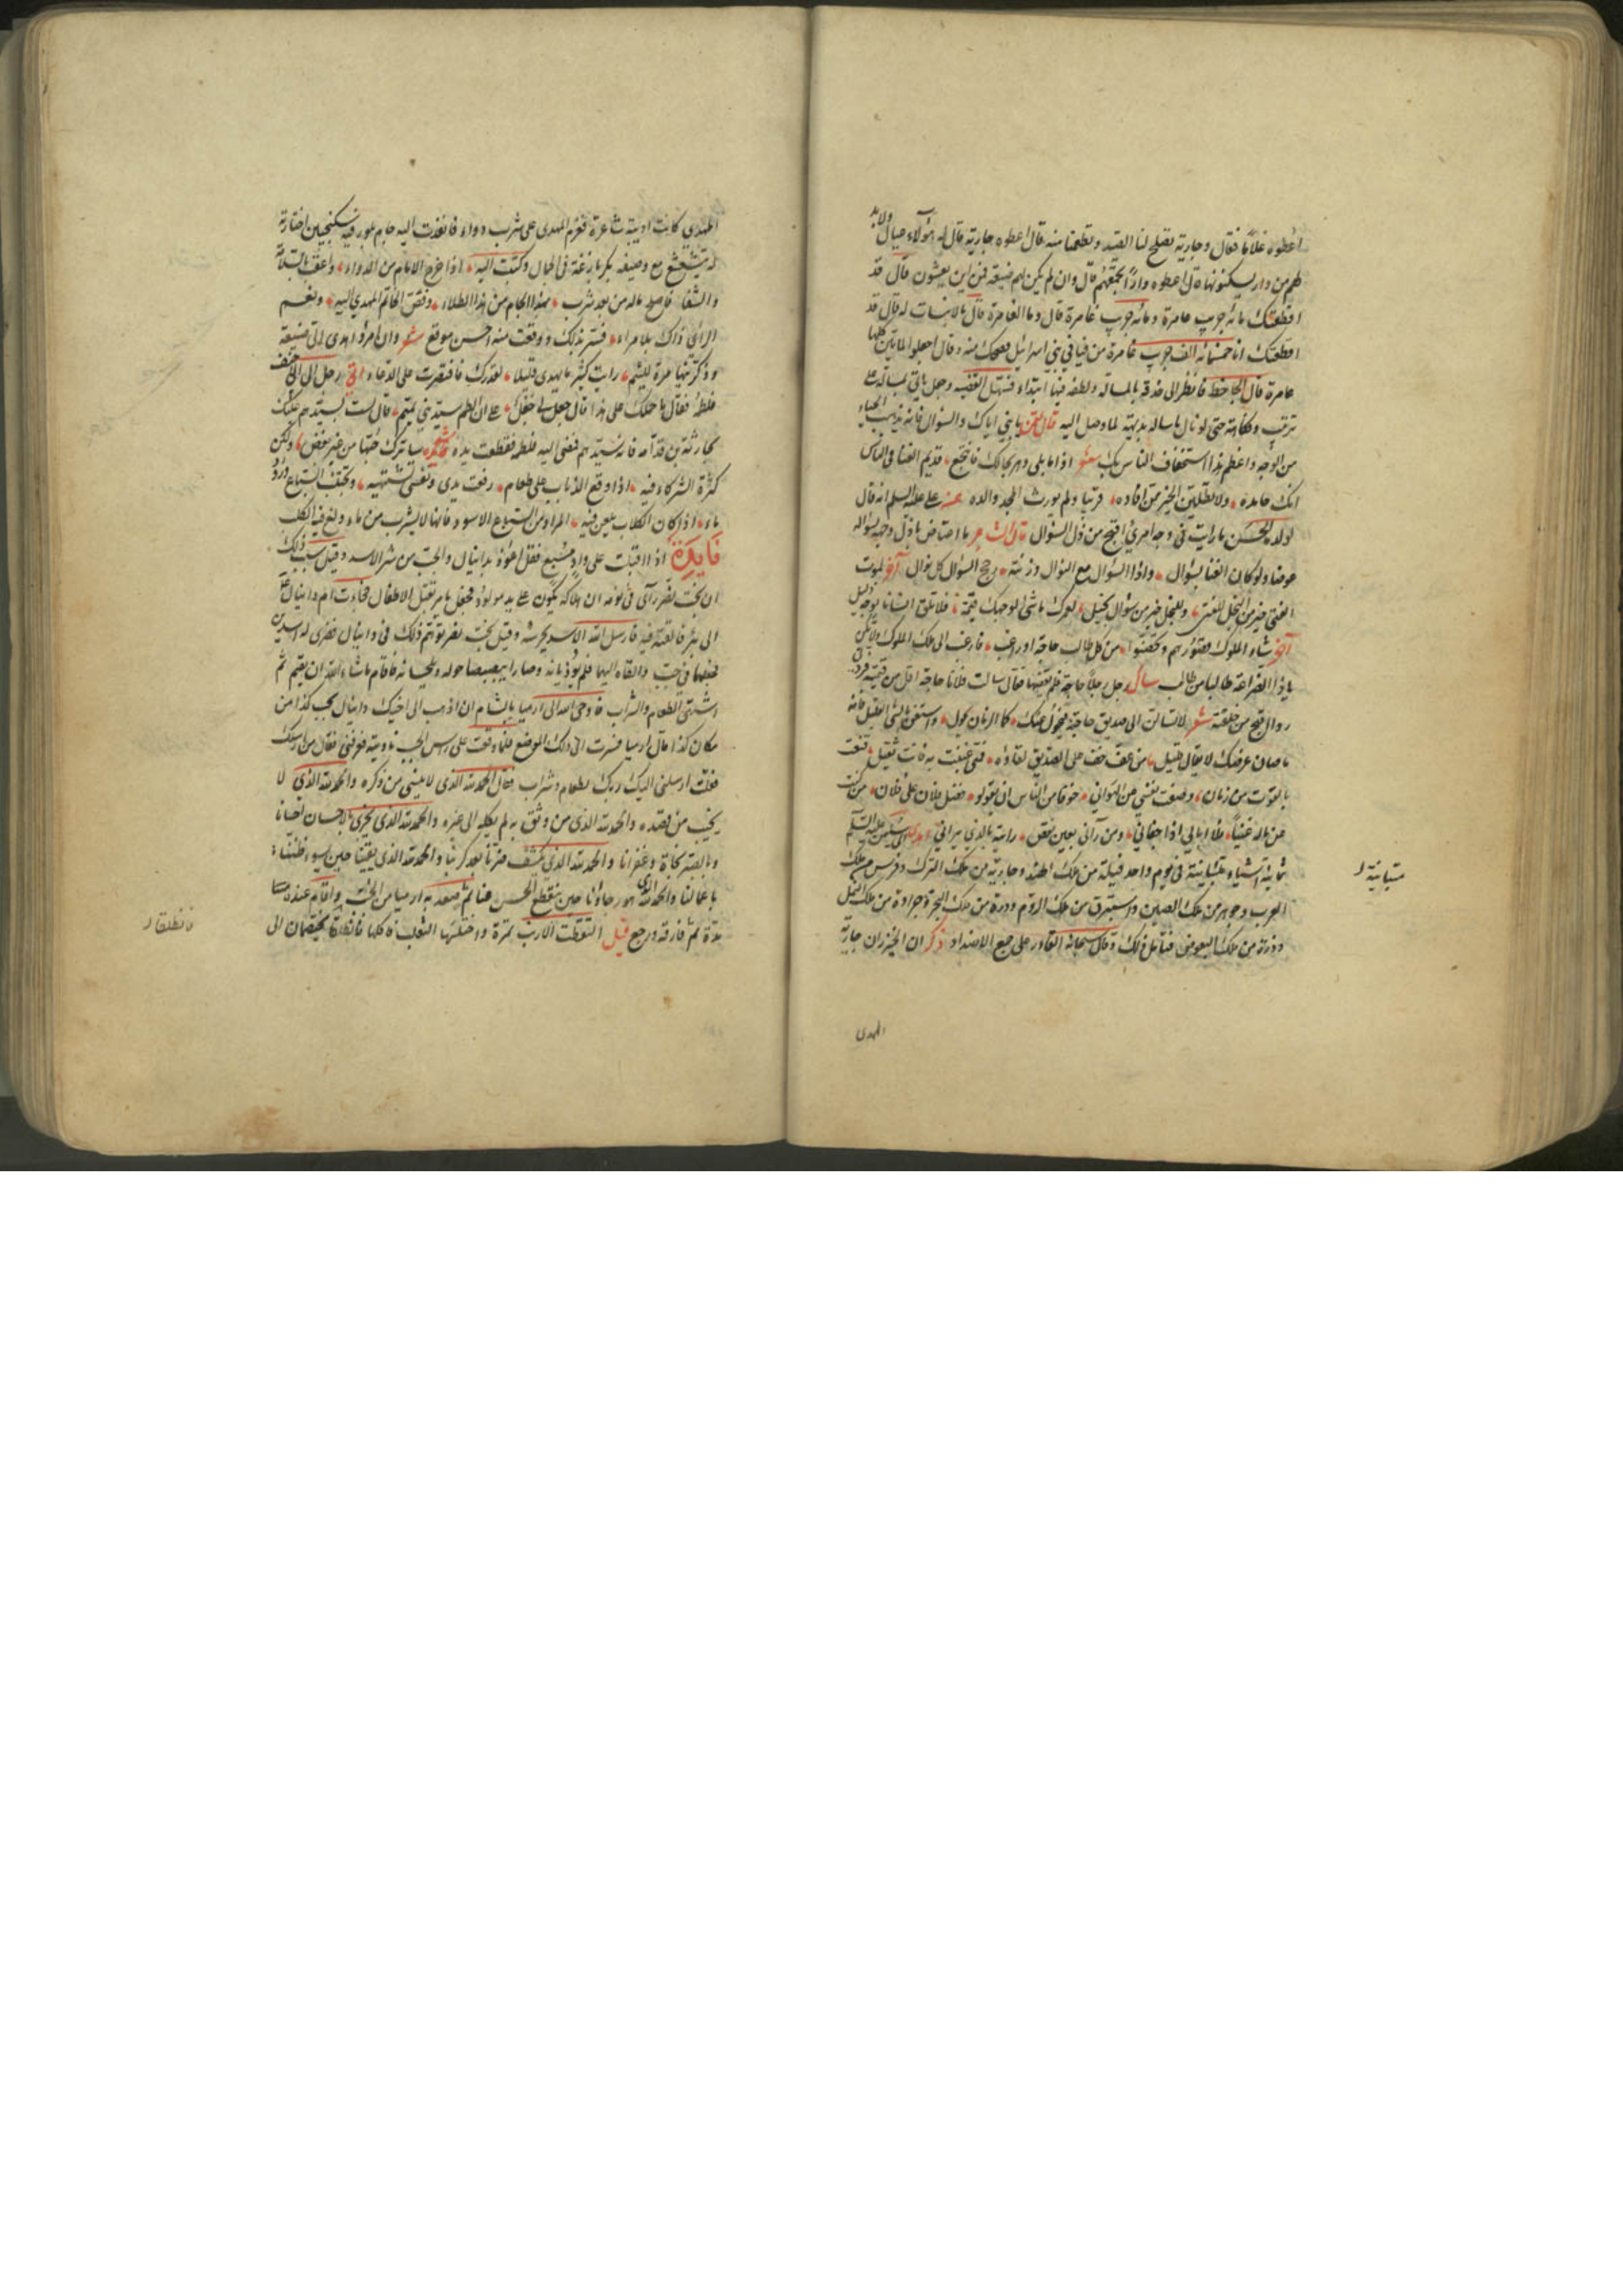 اعطوه غلاما فقال وجارية تصلح لنا الصيد وتطعمنا منه قال اعطوه جارية قال له هؤلاء عيال ولابد
لهم من دار يسكنونها قال اعطوه دارا تجمعهم قال وان لم يكن لهم ضيعة فمن اين يعيشون قال قد
اقطعتك مائه جريب عامرة ومائه جريب غامرة قال وما الغامرة قال مالانبات له قال قد
اقطعتك انا خمسمائه الف جريب غامرة من فيافي بني اسرائيل فضحك منه وقال اجعلوا المايتين كلها
عامرة قال الجاحظ فانظر الى حذقه بالمسالة ولطفه فيها ابتداء فسهل القضيه وجعل ياتي بمسالة على
ترتيب وفكاهة حتى لو سال ما ساله بديهة لما وصل اليه قال لقمن يا بني اياك والسؤال فانه يذهب الحياء
من الوجه واعظم من هذا استخفاف الناس بك شعر اذا ما بلي دهر بحالك فانتجع قديم الغنا في الناس
انك حامده ولا تطلبن الخير ممن افاده قريبا ولم يورث المجد والده عن علي عليه السلم انه قال
لولده الحسن ما رايت في وجه امرئ اقبح من ذل السؤال قال الشاعر ما اعتاض باذل وجهه بسؤاله
عوضا ولو كان الغنا بسؤال واذا السؤال مع النوال وزنته رجح السؤال كل نوال آخر لموت
الفتى خير من البخل للفتى وللبخل خير من سؤال بخيل لعمرك ما شئ لوجهك قيمة فلا تلق انسانا بوجه ذليل
آخر شاد الملوك قصورهم وتحصنوا من كل طالب حاجة او راغب فارغب الى ملك الملوك ولا تكن
يا ذا الضراعة طالبا من طالب سال رجل رجلا حاجة فلم يقضها فقال سالت فلانا حاجة اقل من قيمته فرده
رد اقبح من خلقته شعر لا تسالن الى صديق حاجة فيحول عنك كما الزمان يحول واستغن بالشئ القليل فانه
ما صان عرضك لا يقال قليل من عف خف على الصديق لقاؤه فتى غنيت به فانت ثقيل قنعت
بالقوت من زمان وصنت نفسي عن الهوان خوفا من الناس ان يقولو فضل فلان على فلان من كنت
عن ماله غنيا فلا ابالي اذا جفاني ومن رآني بعين نقص رايته بالذي يراني اهدى الى سليمن عليه السلم
ثمانية اشياء متباينة في يوم واحد فيلة من ملك الهند وجارية من ملك الترك وفرس من ملك
العرب وجوهر من ملك الصين واستبرق من ملك الروم ودرة من ملك البحر وجرادة من ملك النمل
وذرة من ملك البعوض فتامل ذلك وقال سبحانه القادر على جمع الاضداد ذكر ان الخيزران جارية
متباينة
المهدي
المهدي كانت اديبة شاعرة فعزم المهدي على شرب دواء فانفذت اليه جام بلور فيه سكنجبين اختارته
له مع وصيفة بكر بارعة في الجمال وكتبت اليه اذا خرج الامام من الدواء واعقب بالسلامة
والشفا واصلح حاله من بعد شرب بهذا الجام من هذا الطلاء وفض الخاتم المهدي اليه ونعم
الراي ذاك بلا مراء فسر بذلك ووقعت منه احسن موقع شعر وان امرؤ اهدى الى صنيعة
وذكرنيها مرة للئيم رايت كثير ما يهدي قليلا لقدرك فاقتصرت على الدعاء اتى رجل الى الاحنف
فلطمه فقال ما حملك على هذا قال جعل لي جعل على ان الطم سيد بني تميم قال لست بسيدهم عليك
بحارثة بن قدامه فانه سيدهم فمضى اليه فلطمه فقطعت يده شعر ساترك حبها من غير بغض ولكن
كثرة الشركاء فيه اذا وقع الذباب على طعام رفعت يدي ونفسي تشتهيه وتجتنب السباع ورود
ماء اذا كان الكلاب يلغن فيه المراد من السباع الاسود فانها لا تشرب من ماء ولغ فيه الكلب
فايدة اذا اقبلت على واد مسبع فقل اعوذ بدانيال والجب من شر الاسد وقيل سبب ذلك
ان بخت نصر رآى في نومه ان هلاكه يكون على يد مولود فجعل يامر بقتل الاطفال فجاءت ام دانيال
الى بئر فالقته فيه فارسل الله الاسد يحرسه وقيل بخت نصر توهم ذلك في دانيال فضرى له اسدين
فجعلهما في جب والقاه اليهما فلم يؤذيانه وصارا يبصبصا حوله ويلحسانه فاقام ما شاء الله ان يقيم ثم
اشتهى الطعام والشراب فاوحى الله الى ارميا بالشام ان اذهب الى اخيك دانيال بجب كذا من
مكان كذا قال ارميا فسرت الى ذلك الموضع فلما وقفت على راس الجب ناديته فعرفني فقال من ارسلك
فقلت ارسلني اليك ربك بطعام وشراب فقال الحمد لله الذي لا ينسى من ذكره والحمد لله الذي لا
يخيب من قصده والحمد لله الذي من وثق به لم يكله الى غيره والحمد لله الذي يجزي بالاحسان احسانا
وبالصبر نجاة وغفرانا والحمد لله الذي يكشف ضرنا بعد كربنا والحمد لله الذي يقينا حين يسوء ظننا
باعمالنا والحمد لله الذي هو رجاؤنا حين تنقطع الحيل عنا ثم صعد به ارميا من الجب واقام عنده
مدة ثم فارقه ورجع قيل التقطت الارنب تمرة واختلسها الثعلب فاكلها فانطلقا يختصمان الى
فانطلقا